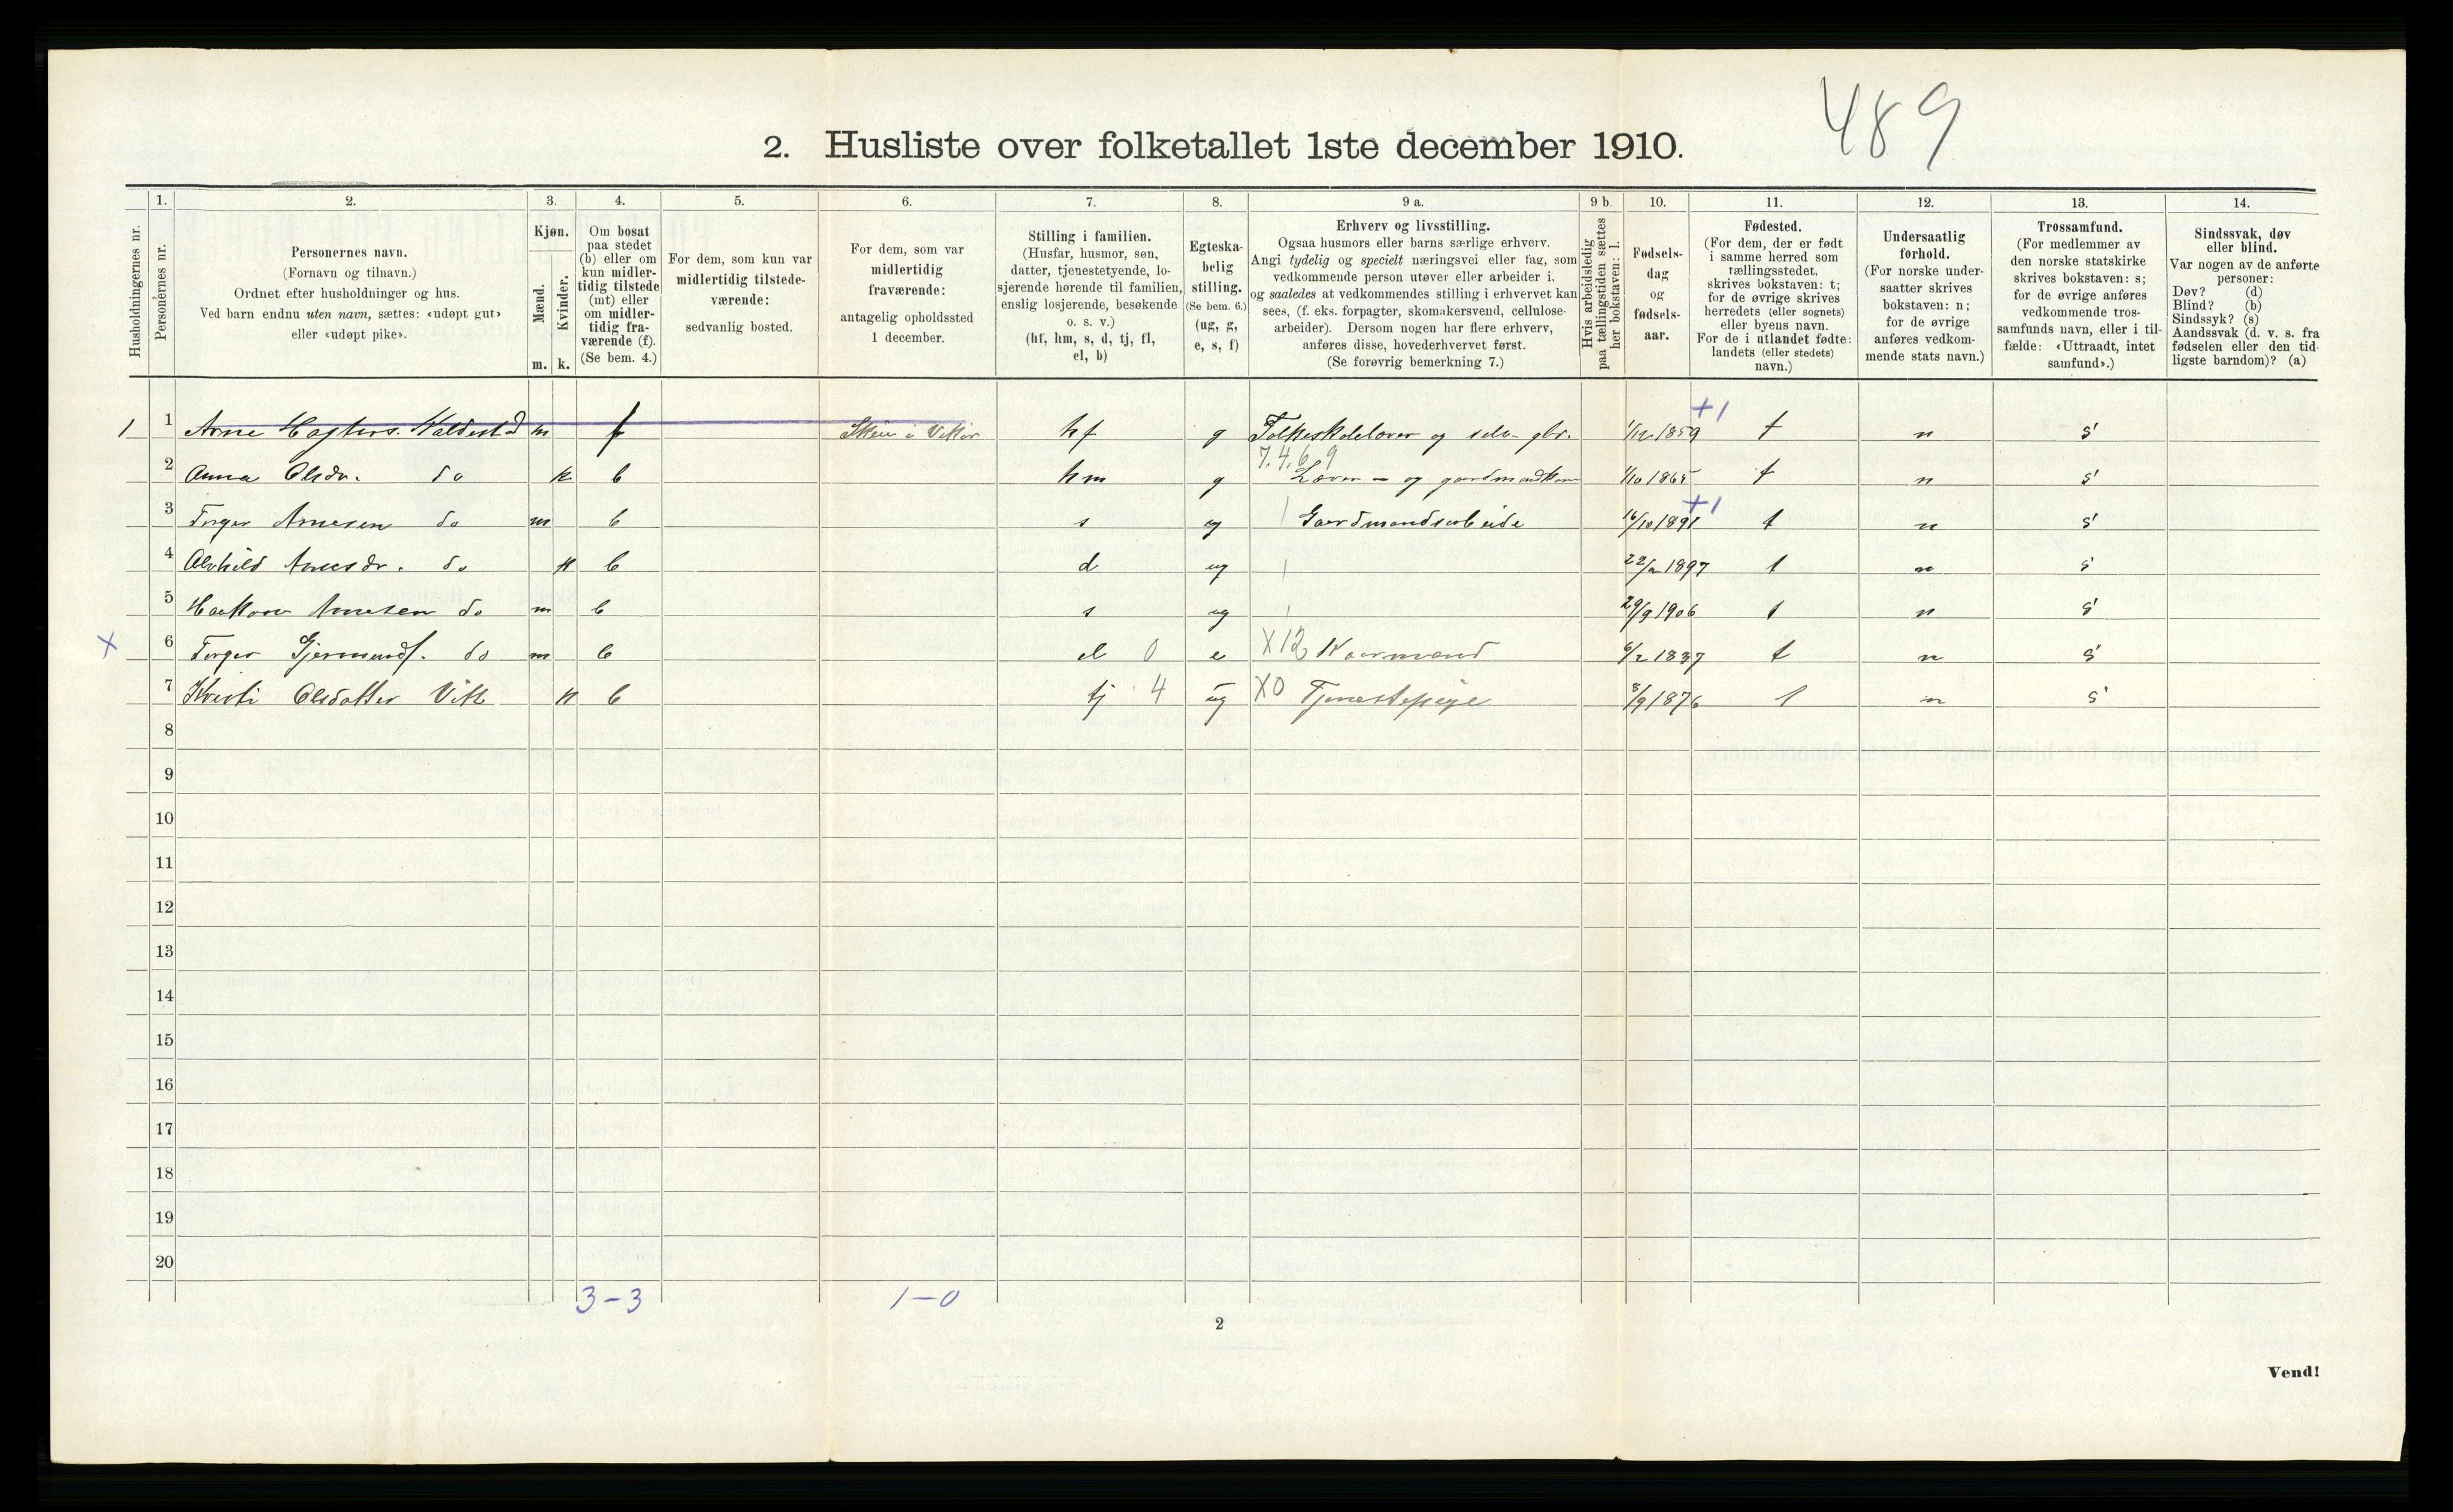 489
2. Husliste over folketallet 1ste december 1910.
Husholdningernes nr.
1.
Personernes nr.
2.
Personernes navn.
(Fornavn og tilnavn.)
Ordnet efter husholdninger og hus.
Ved barn endnu uten navn, sættes: «udøpt gut»
eller «udøpt pike».
3.
Kjøn.
Mænd.
m.
Kvinder.
k.
4.
Om bosat
paa stedet
(b) eller om
kun midler-
tidig tilstede
(mt) eller
om midler-
tidig fra-
værende (f).
(Se bem. 4.)
5.
For dem, som kun var
midlertidig tilstede-
værende:
sedvanlig bosted.
6.
For dem, som var
midlertidig
fraværende:
antagelig opholdssted
1 december.
7.
Stilling i familien.
(Husfar, husmor, søn,
datter, tjenestetyende, lo-
sjerende hørende til familien,
enslig losjerende, besøkende
o. s. v.)
(hf, hm, s, d, tj, fl,
el, b)
8.
Egteska-
belig
stilling.
(Se bem. 6.)
(ug, g,
e, s, f)
9 a.
Erhverv og livsstilling.
Ogsaa husmors eller barns særlige erhverv.
Angi tydelig og specielt næringsvei eller fag, som
vedkommende person utøver eller arbeider i,
og saaledes at vedkommendes stilling i erhvervet kan
sees, (f. eks. forpagter, skomakersvend, cellulose-
arbeider). Dersom nogen har flere erhverv,
anføres disse, hovederhvervet først.
(Se forøvrig bemerkning 7.)
9 b.
Hvis arbeidsledig
paa tællingstiden sættes
her bokstaven: l.
10.
Fødsels-
dag
og
fødsels-
aar.
11.
Fødested.
(For dem, der er født
i samme herred som
tællingsstedet,
skrives bokstaven: t;
for de øvrige skrives
herredets (eller sognets)
eller byens navn.
For de i utlandet fødte:
landets (eller stedets)
navn.)
12.
Undersaatlig
forhold.
(For norske under-
saatter skrives
bokstaven: n;
for de øvrige
anføres vedkom-
mende stats navn.)
13.
Trossamfund.
(For medlemmer av
den norske statskirke
skrives bokstaven: s;
for de øvrige anføres
vedkommende tros-
samfunds navn, eller i til-
fælde: «Uttraadt, intet
samfund».)
14.
Sindssvak, døv
eller blind.
Var nogen av de anførte
personer:
Døv? (d)
Blind? (b)
Sindssyk? (s)
Aandssvak (d. v. s. fra
fødselen eller den tid-
ligste barndom)? (a)
+1
1 1 Arne m f Skeie i Vikør hf g Folkeskolelærer og selv- gbr. 1/12 1859 t n s
7.4.6.9
2 Anna Olsdr. do k b hm g Lærer - og gardmandkone 1/10 1865 t n s
+1
3 Torger Arnesen do m b s ug Gaardmandsarbeide 16/10 1891 t n s
4 Alvhild Arnesdr. do k b d ug 1897 t n s
5 Haakon Arnesen do m b s ug 29/9 1906 t n s
x 6 Torger Gjermunds. do m b el 0 e X12 Kaarmand 6/2 1837 t n s
7 Kristi Olsdatter Vik k b tj 4 ug X0 Tjenestepige 8/9 1876 t n s
8
9
10
11
12
13
14
15
16
17
18
19
20
3-3 1-0
2
Vend!